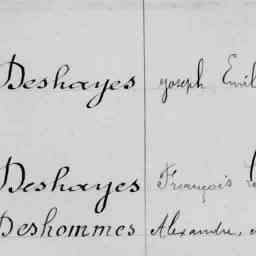 Deshayes Joseph Emil
Deshayes François
Deshommes Alexandre,